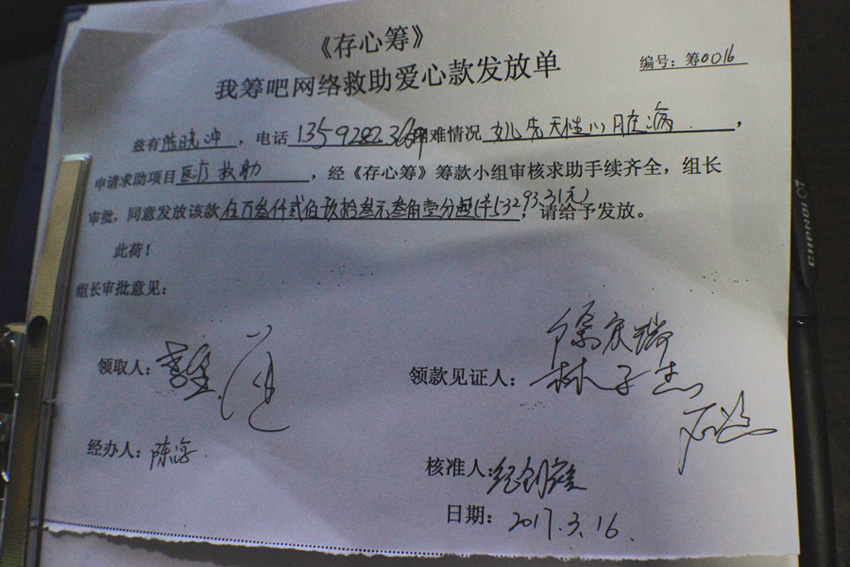 《存心筹》
我筹吧网络救助爱心款发放单
编号：筹0016
兹有陈晓冲，电话135928236难情况女儿先天性心脏病，
申请求助项目医疗救助，经《存心筹》筹款小组审核求助手续齐全，组长
审批，同意发放该款伍万叁仟贰佰玖拾叁元叁角壹分整(¥53293.31元)，请给予发放。
此荷！
组长审批意见：
领取人：
领款见证人：徐庆瑞
林子杰
经办人：陈淳
核准人：
日期：2017.3.16
CHENGUANG